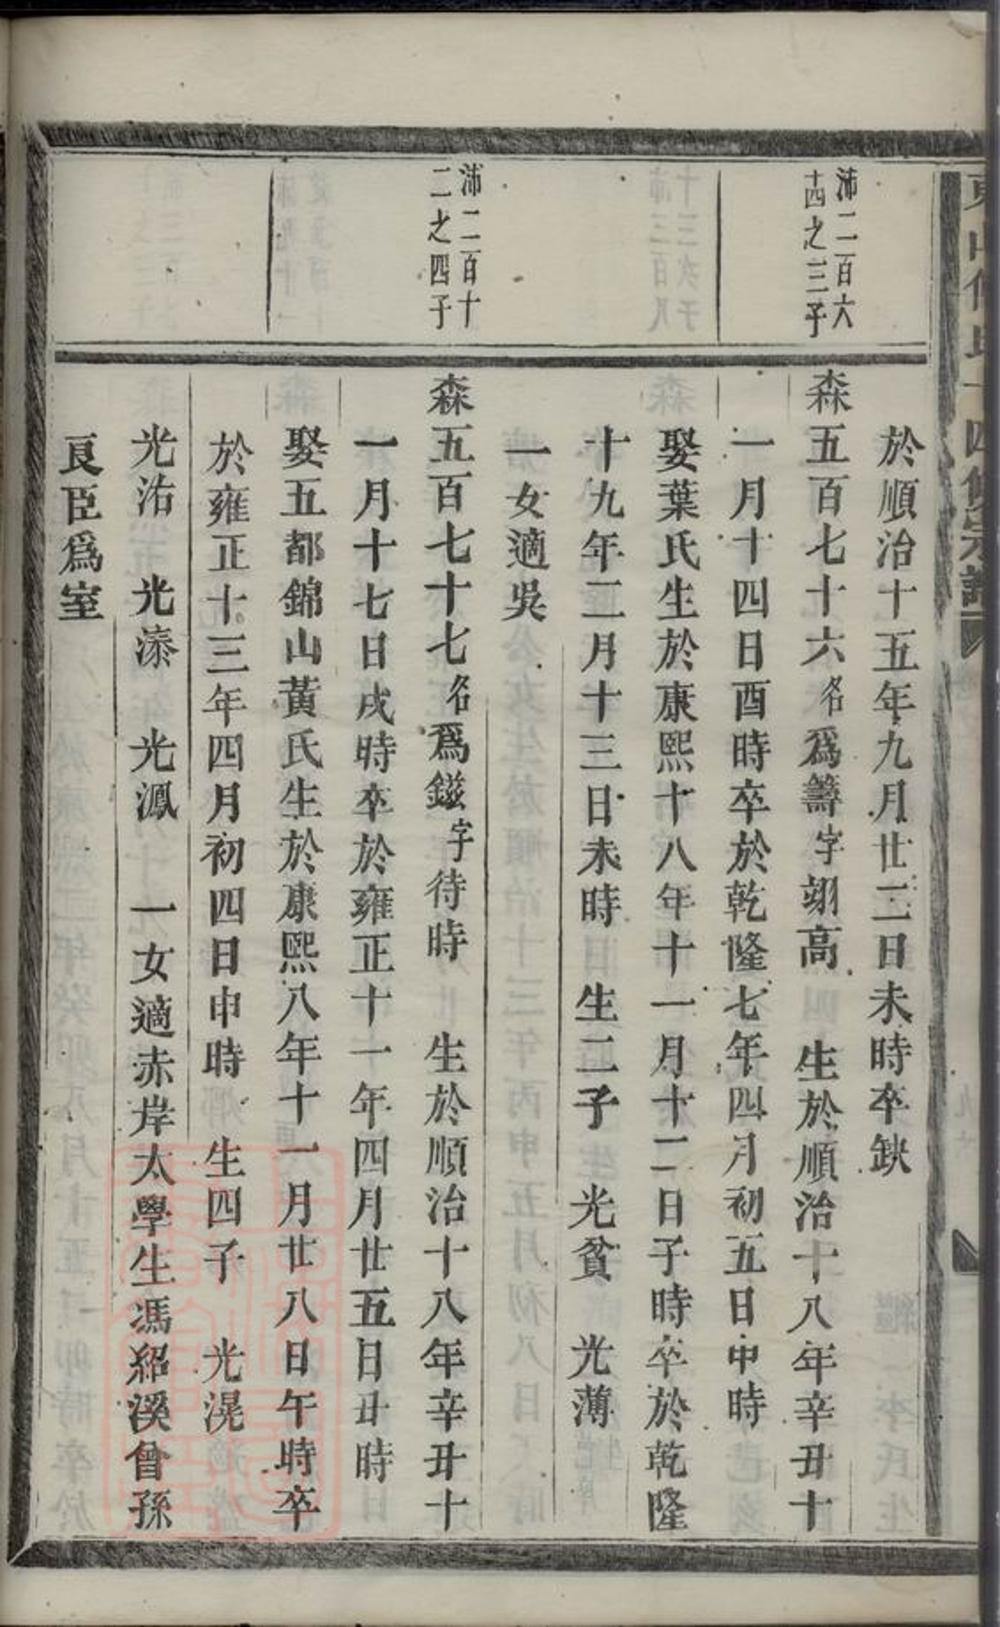 沛二百六
十四之三子
沛二百十
二之四子
於順治十五年九月廿二日未時卒缺
森五百七十六名爲籌字翊高 生於順治十八年辛丑十
一月十四日酉時卒於乾隆七年四月初五日申時
娶葉氏生於康熙十八年十一月十二日子時卒於乾隆
十九年二月十三日未時 生二子 光貧 光薄
一女適吳
森五百七十七名爲鎡字待時 生於順治十八年辛丑十
一月十七日戌時卒於雍正十一年四月廿五日丑時
娶五都錦山黃氏生於康熙八年十一月廿八日午時卒
於雍正十三年四月初四日申時 生四子 光滉
光洁 光溱 光㵯 一女適赤岸太學生馮紹溪曾孫
良臣爲室